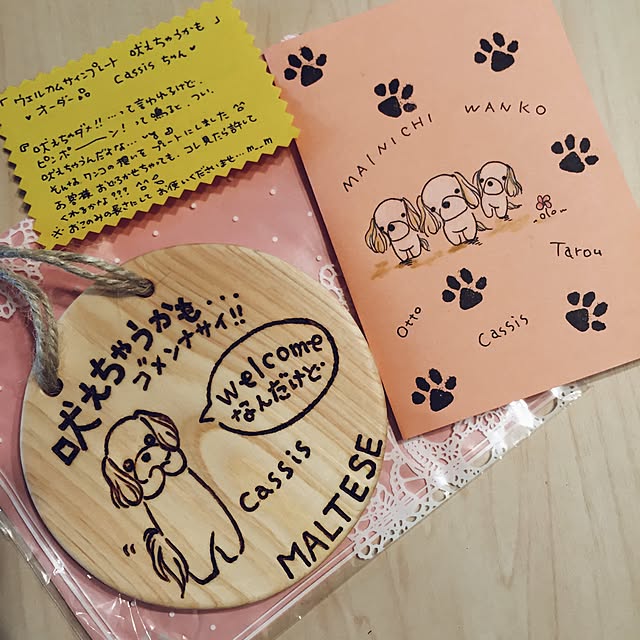 「ウェルカムサインプレート 吠えちゃうかも」
♥オーダー品 Cassis ちゃん♥
『吠えちゃダメ!! …って言われるけど、
ピンポーン! って鳴ると、つい、
吠えちゃうんだよね…
そんな ワンコの想いを プレートにしました
お客様 おどろかせちゃっても、コレ見たら許して
くれるかな???
※ お好みの長さにして お使いくださいませ…m__m
MAINICHI WANKO
olo
Tarou
Otto
Cassis
吠えちゃうかも...
ゴメンナサイ!!
welcome
なんだけど
Cassis
MALTESE